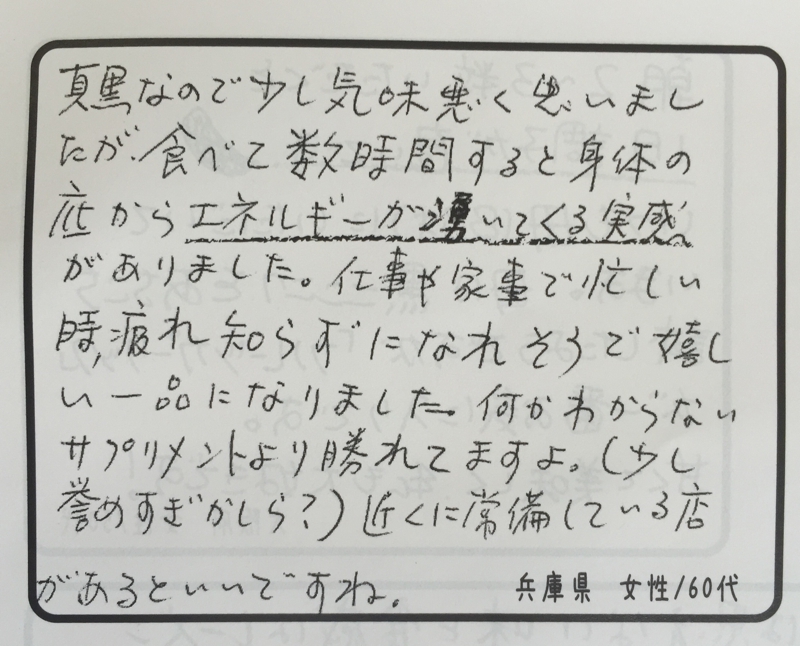 真黒なので少し気味悪く思いまし
たが、食べて数時間すると身体の
底からエネルギーが湧いてくる実感
がありました。仕事や家事で忙しい
時,疲れ知らずになれそうで嬉し
い一品になりました。何かわからない
サプリメントより勝れてますよ。(少し
誉めすぎかしら?)近くに常備している店
があるといいですね。
兵庫県 女性/60代